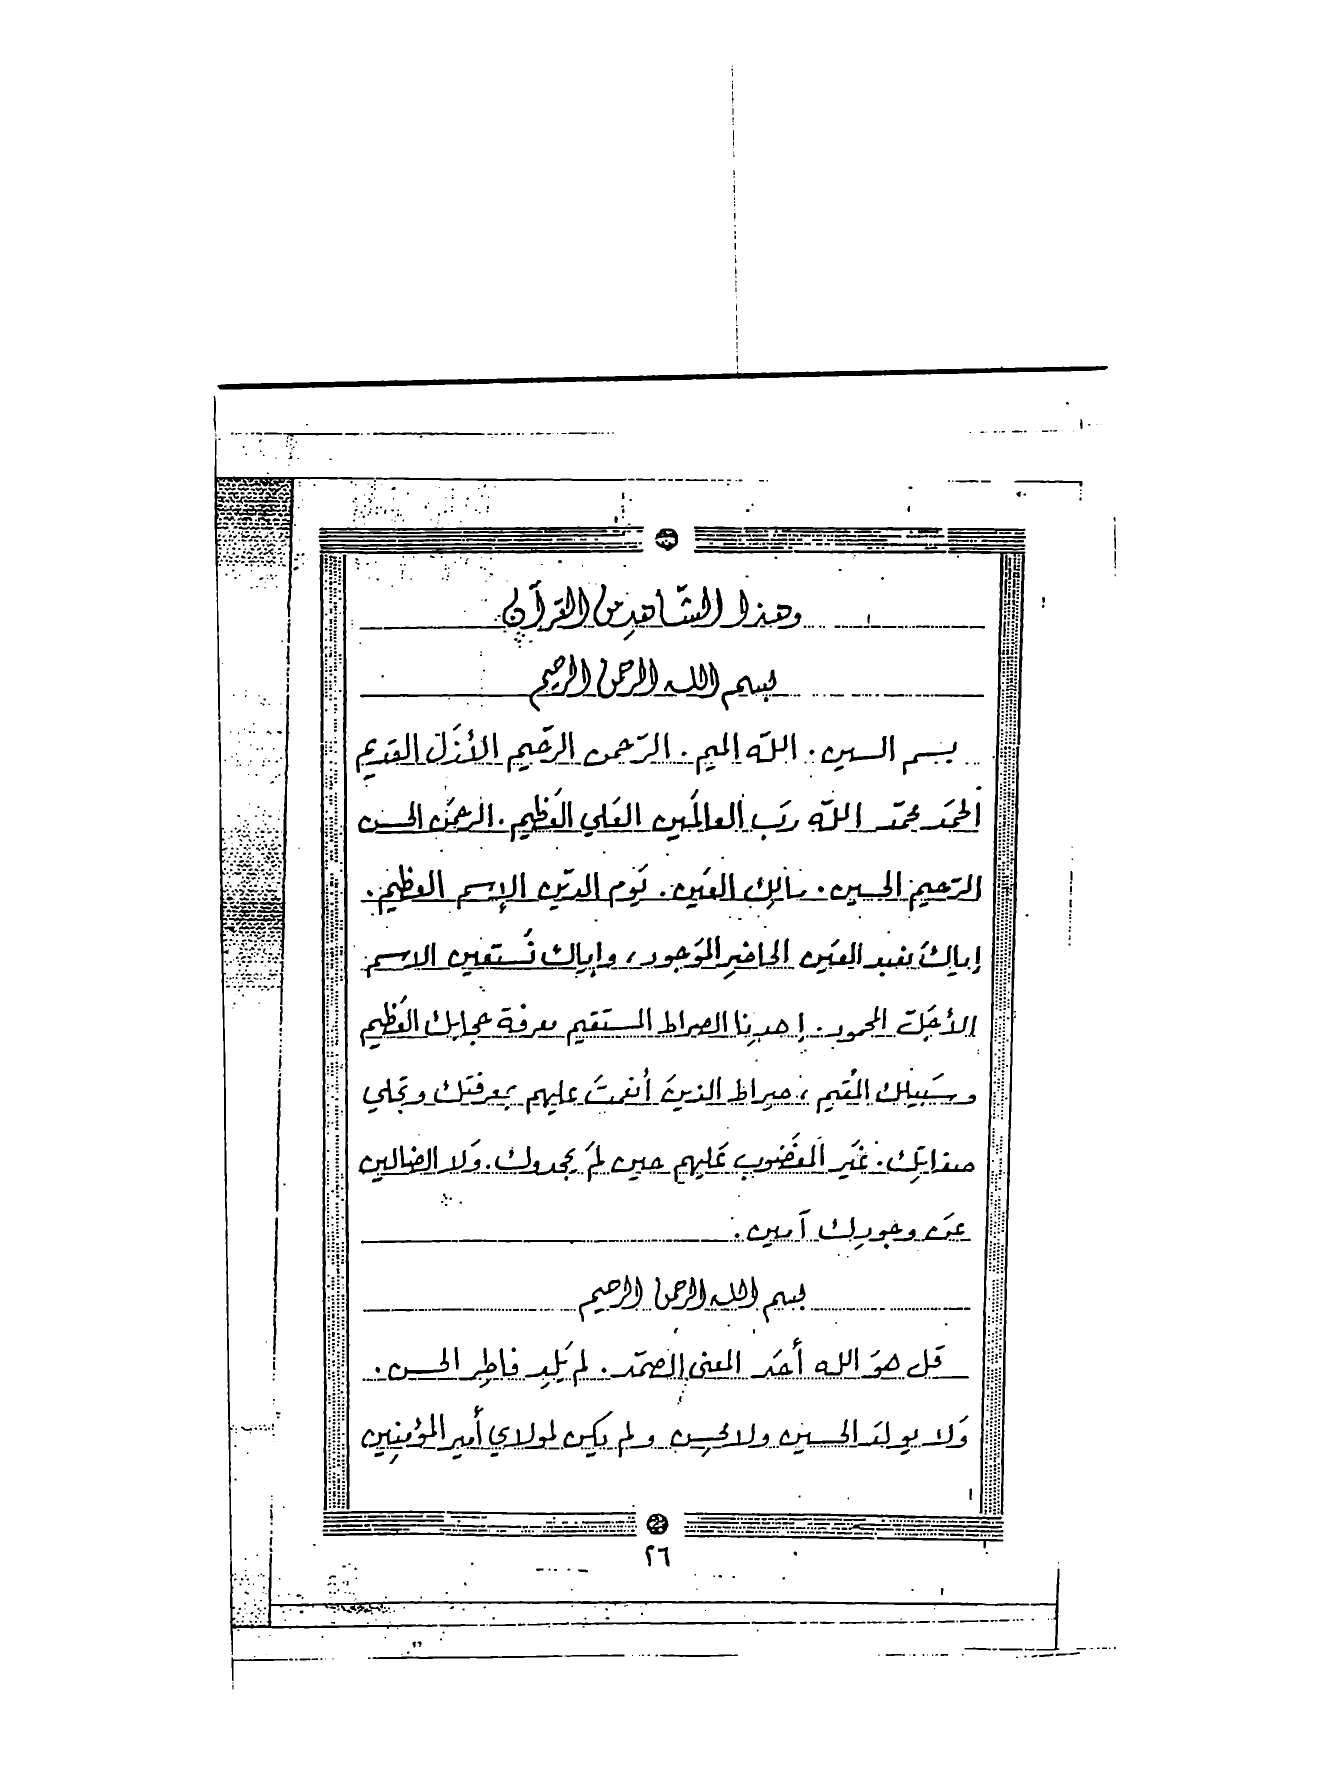 وهذا الشّاهد من القرآن
بسم الله الرحمن الرحيم
بسم السين. اللّه الميم. الرّحمن الرحَيم الأزَل القديم
الحمَد محمّد اللّه ربَ العالمَين العَلي العَظيم. الرحمَن الحسن
الرّحيم الحسين. مالِك العَين. يَوم الدّين الإسم العظيم.
إياكَ نعبد العَين الحاضِر الموَجود، وإياك نَستعين الاسم
الأجَلّ المحمود. إهدِنا الصراط المستَقيم معرفة حجابك العَظيم
وسَبيلك المُقيم، صراط الذينَ أنعمتَ عليهم بمعرفتَك وتجَلي
صفاتِك. غَير اَلمغَضوب عَليهم حين لمَ يجدوك. وَلا الضالين
عَن وجودِك آمين.
بسم الله الرحمن الرحيم
قَل هوَ الله أحَد المعنى الصمَد. لم يَلِد فاطِر الحسن.
وَلا يولَد الحسين ولا محسِن ولم يكَن لمولاي أمير المؤمنِين
٢٦